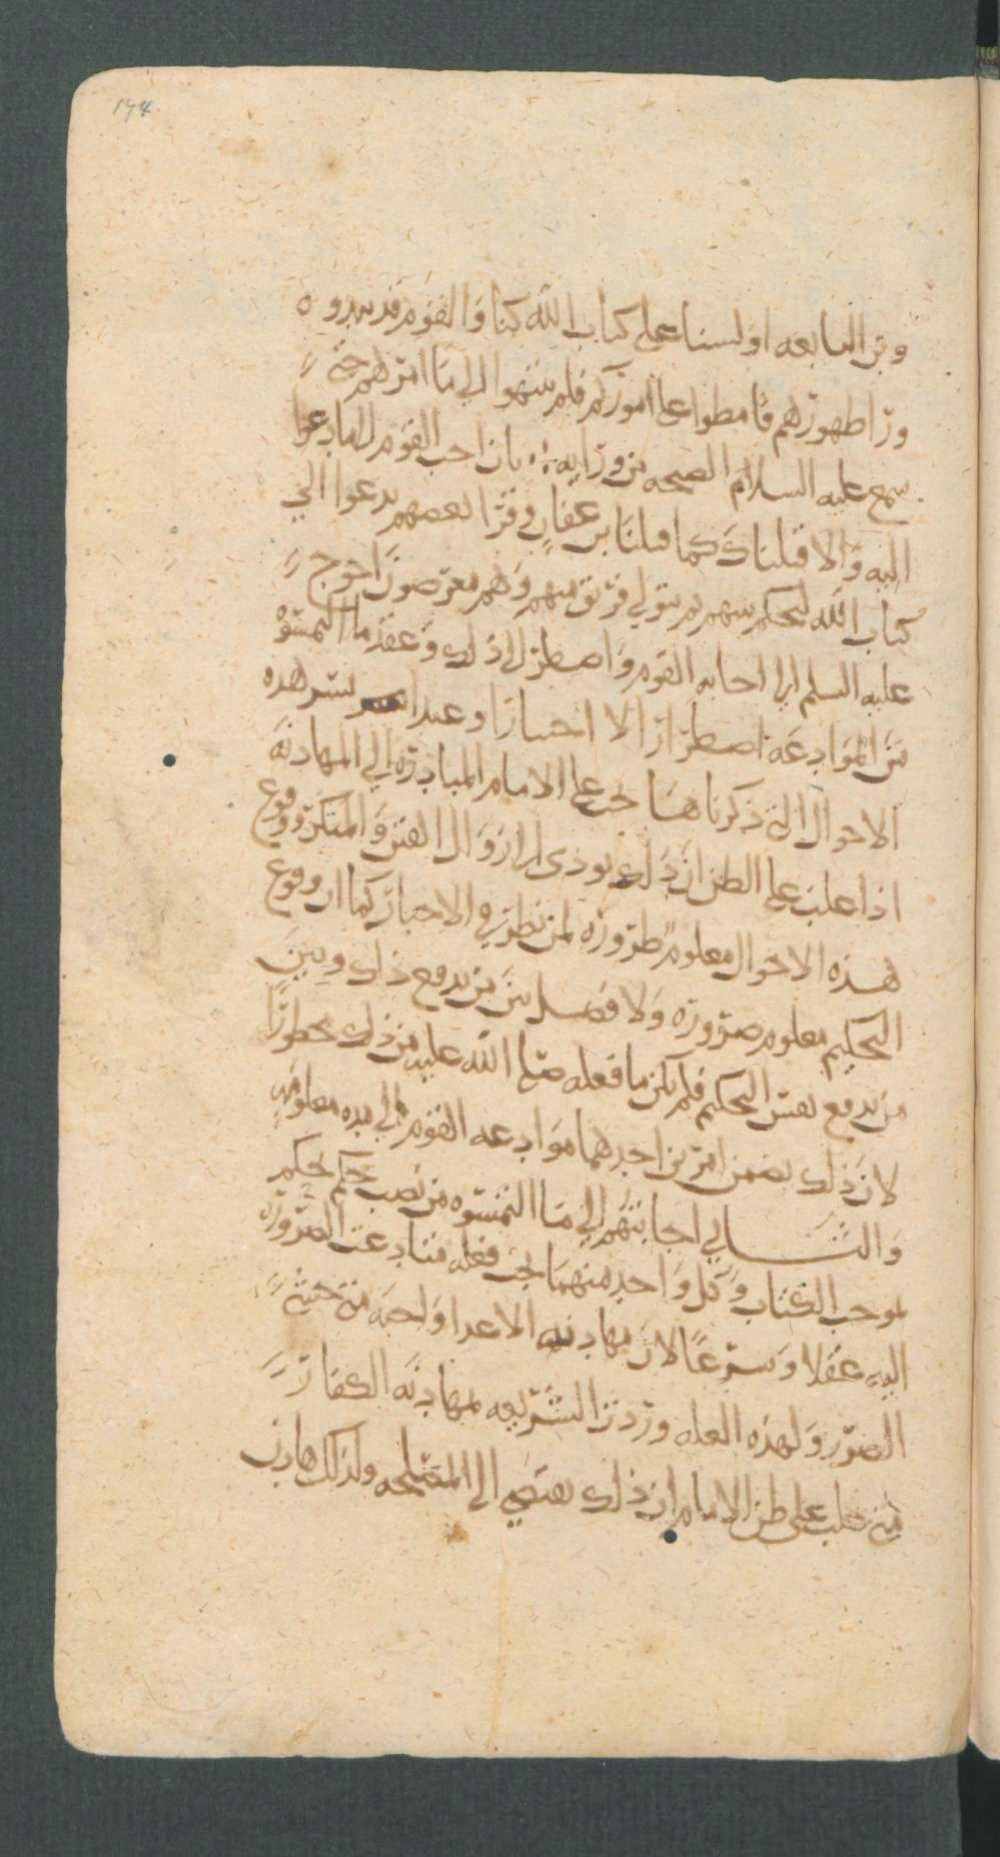 ١٧٤
وبن التابعه اولسنا على كتاب الله كنا والقوم قد نبدوه
ورا طهورهم فامضوا على اموركم فلم ينتهوا الى ما امرهم حتى
سمع عليه السلام الصيحه من ورايه بان اجب القوم الى ما دعوا
اليه والا قتلناك كما قتلنا بن عفان وقرا بعضهم يدعوا الى
كتاب الله ليحكم بينهم ثم يتولى فريق منهم وهم معرضون احوج
عليه السلم الى اجابه القوم واضطر الى ذلك وعقد ما التمسوه
من الموادعه اضطرارا لا اختيارا وعند تيسر هده
الاحوال التي ذكرناها تجب على الامام المبادره الى المهادنه
اذا غلب على الظن ان ذلك يودى الى زوال الفتن والمنكر ووقوع
هذه الاحوال معلوم ضرورة لمن نظر في الاخبار كما ان وقوع
التحكيم معلوم ضرورة ولا فصل بين من يدفع ذلك وبين
من يدفع نفس التحكيم فلم يكن ما فعله صلى الله عليه من ذلك محظورًا
لان ذلك تضمن امرين احدهما موادعه القوم الى مده معلومه
والثاني اجابتهم الى ما التمسوه من نصب حكم يحكم
بموجب الكتاب وكل واحد منهما يجب فعله متى دعت الضرورة
اليه عقلا وشرعًا لان مهادنه الاعدا واجبه من حيث
الضرر ولهذه العله وردت الشريعه بمهادنه الكفار
متى غلب على ظن الامام ان ذلك يفضي الى المصلحه ولذلك هادن